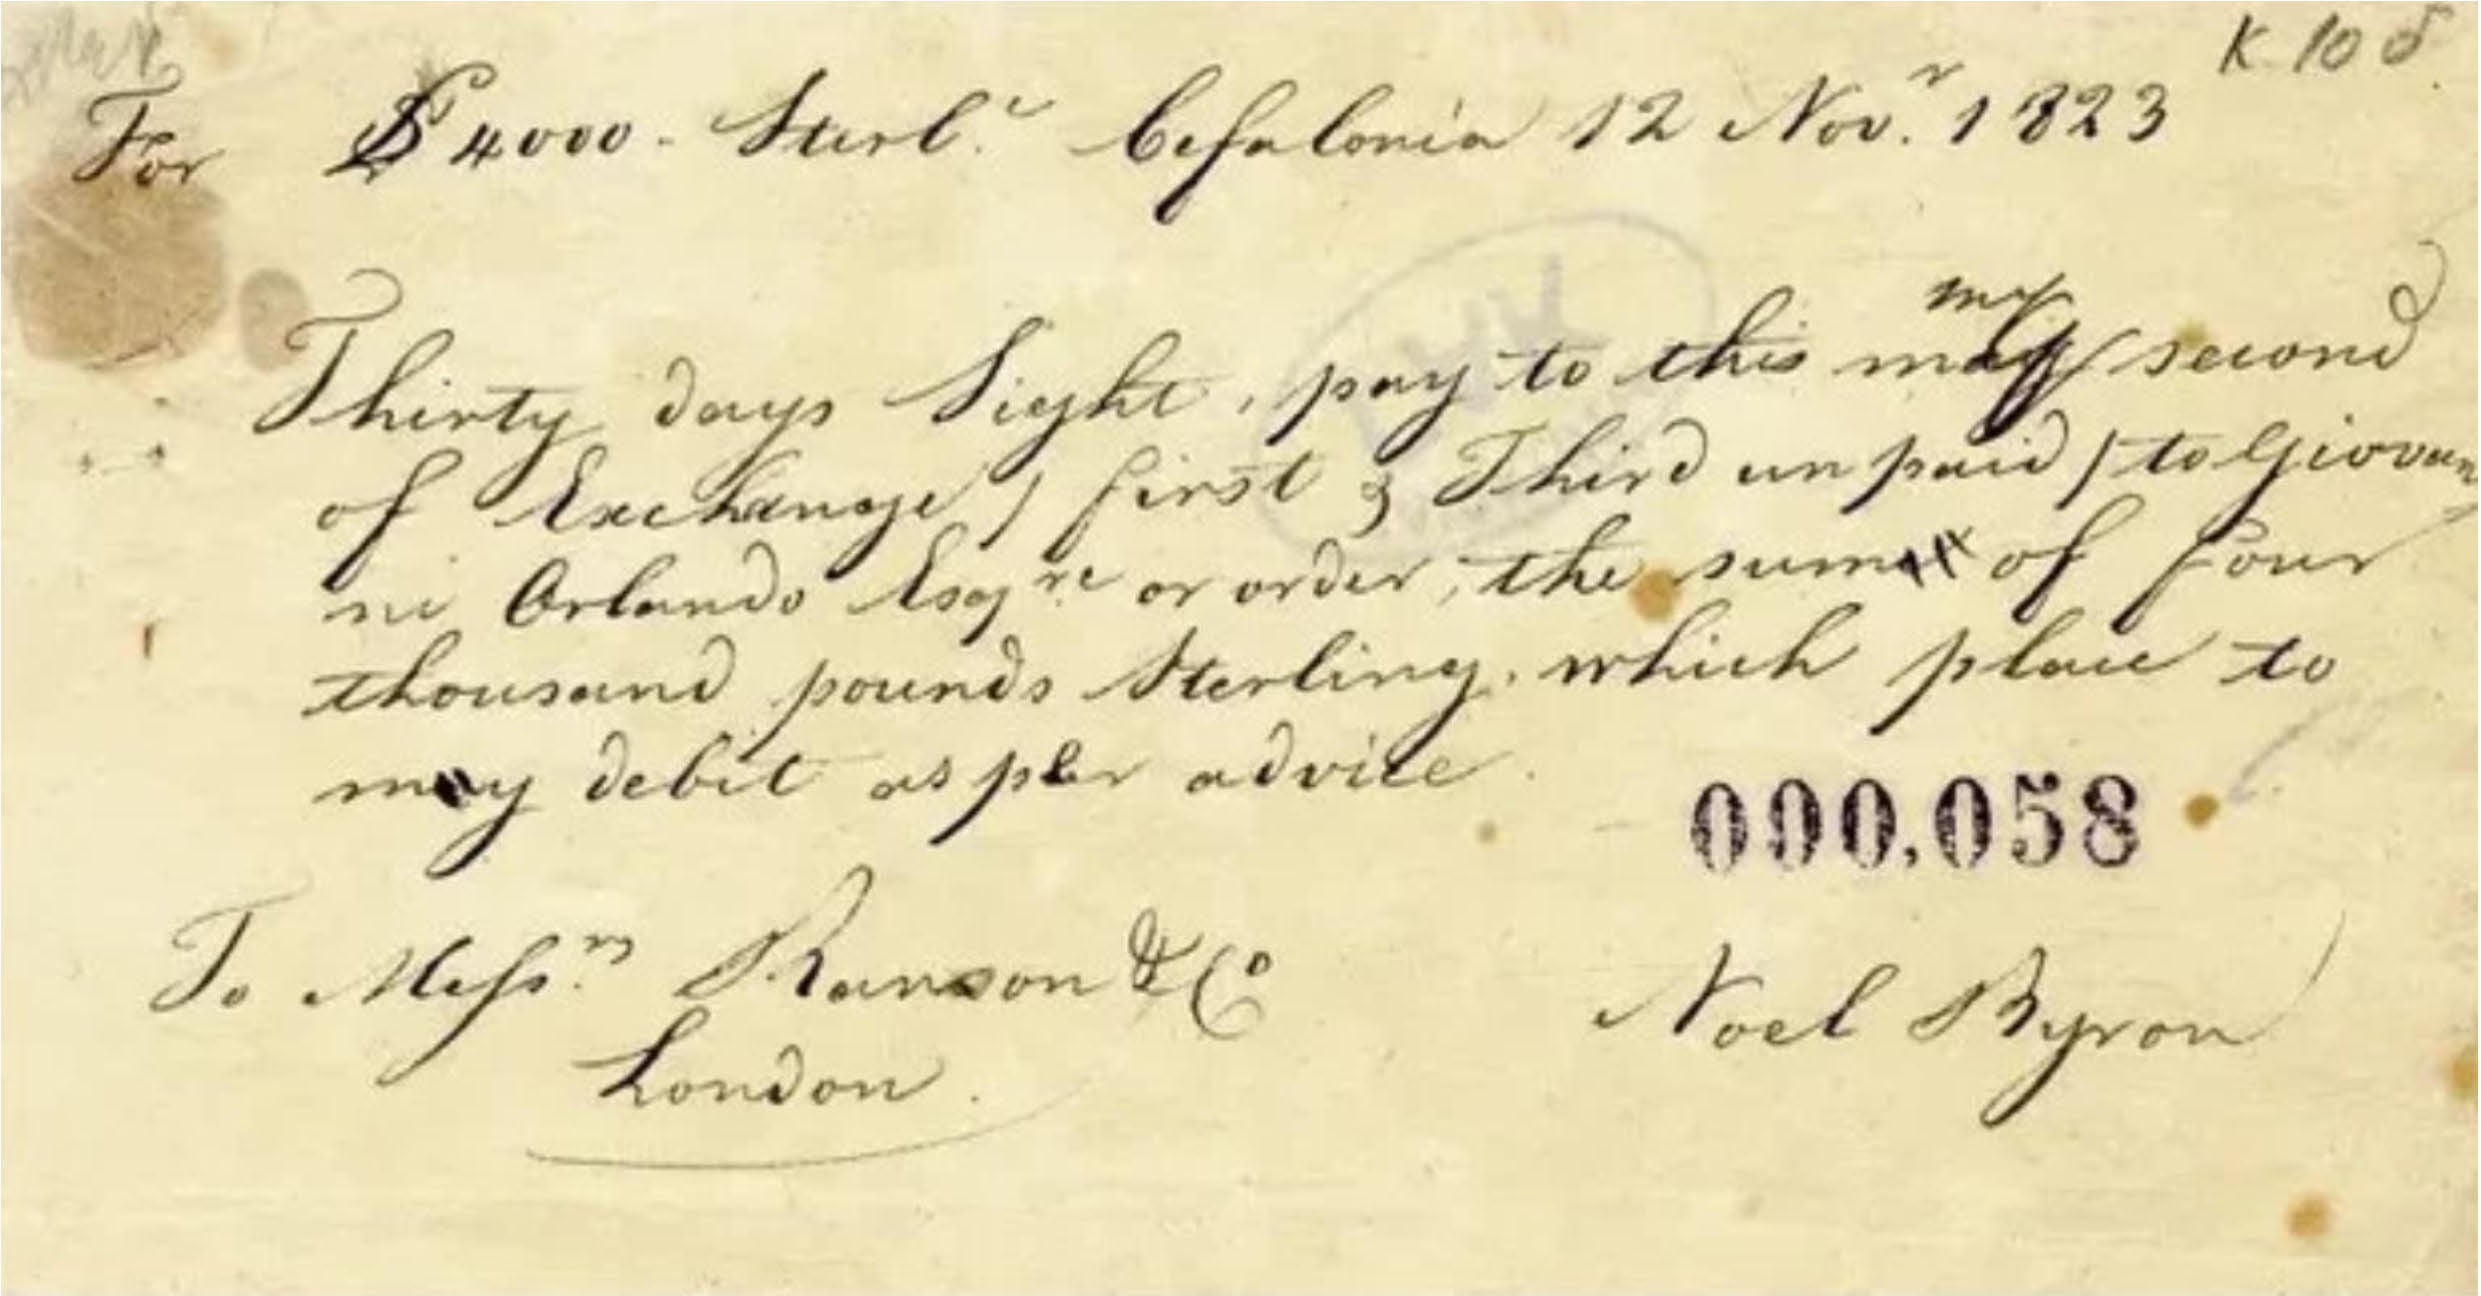 K 10 δ
For £ 4000 - Sterl.e Cefalonia 12 Nov.r 1823
my
Thirty days Sight, pay to this may second
of Exchange / first & Third unpaid / to Giovan
ni Orlando Esqre or order, the sum of four
thousand pounds Sterling. which place to
my debit as per advice.
000,058
To Messrs Ranson & Co
London.
Noel Byron